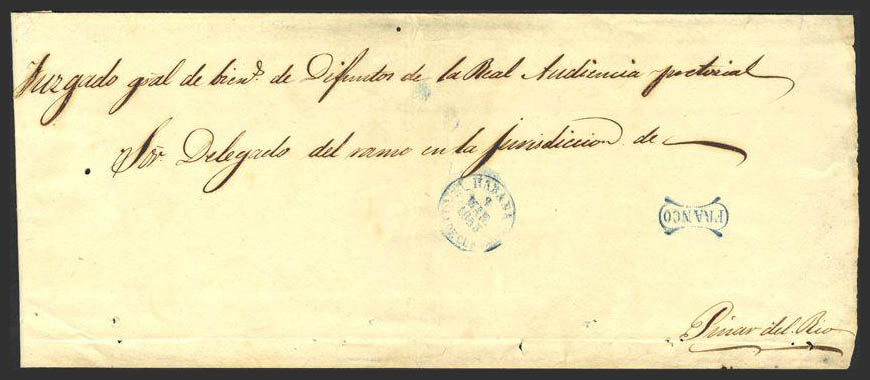 Juzgado gral de biens. de Difuntos de la Real Audiencia pretorial
Sor. Delegado del ramo en la jurisdiccion de
HABANA
1853
FRANCO
Pinar del Rio